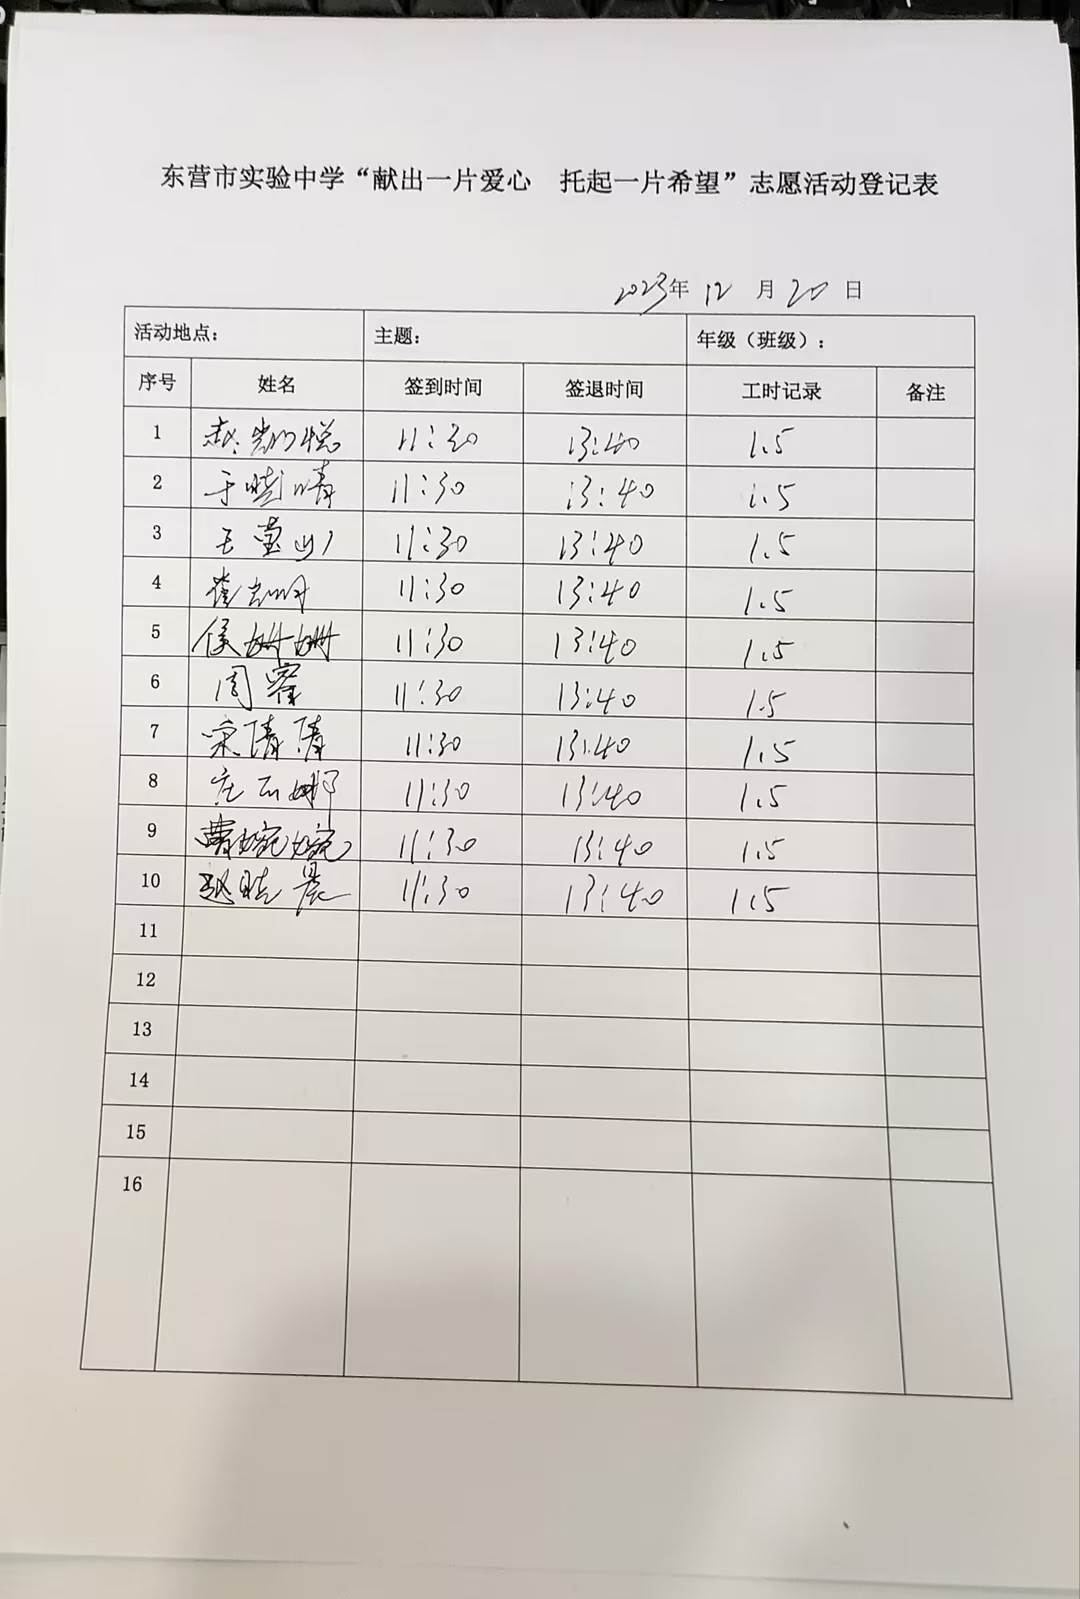 东营市实验中学“献出一片爱心 托起一片希望”志愿活动登记表
2023年 12 月 20 日
活动地点： 主题： 年级（班级）：
序号 姓名 签到时间 签退时间 工时记录 备注
1 11:30 13:40 1.5
2 于晓晴 11:30 13:40 1.5
3 11:30 13:40 1.5
4 11:30 13:40 1.5
5 侯姗姗 11:30 13:40 1.5
6 周蜜 11:30 13:40 1.5
7 宋倩倩 11:30 13:40 1.5
8 11:30 13:40 1.5
9 曹婉婉 11:30 13:40 1.5
10 赵晓晨 11:30 13:40 1.5
11
12
13
14
15
16